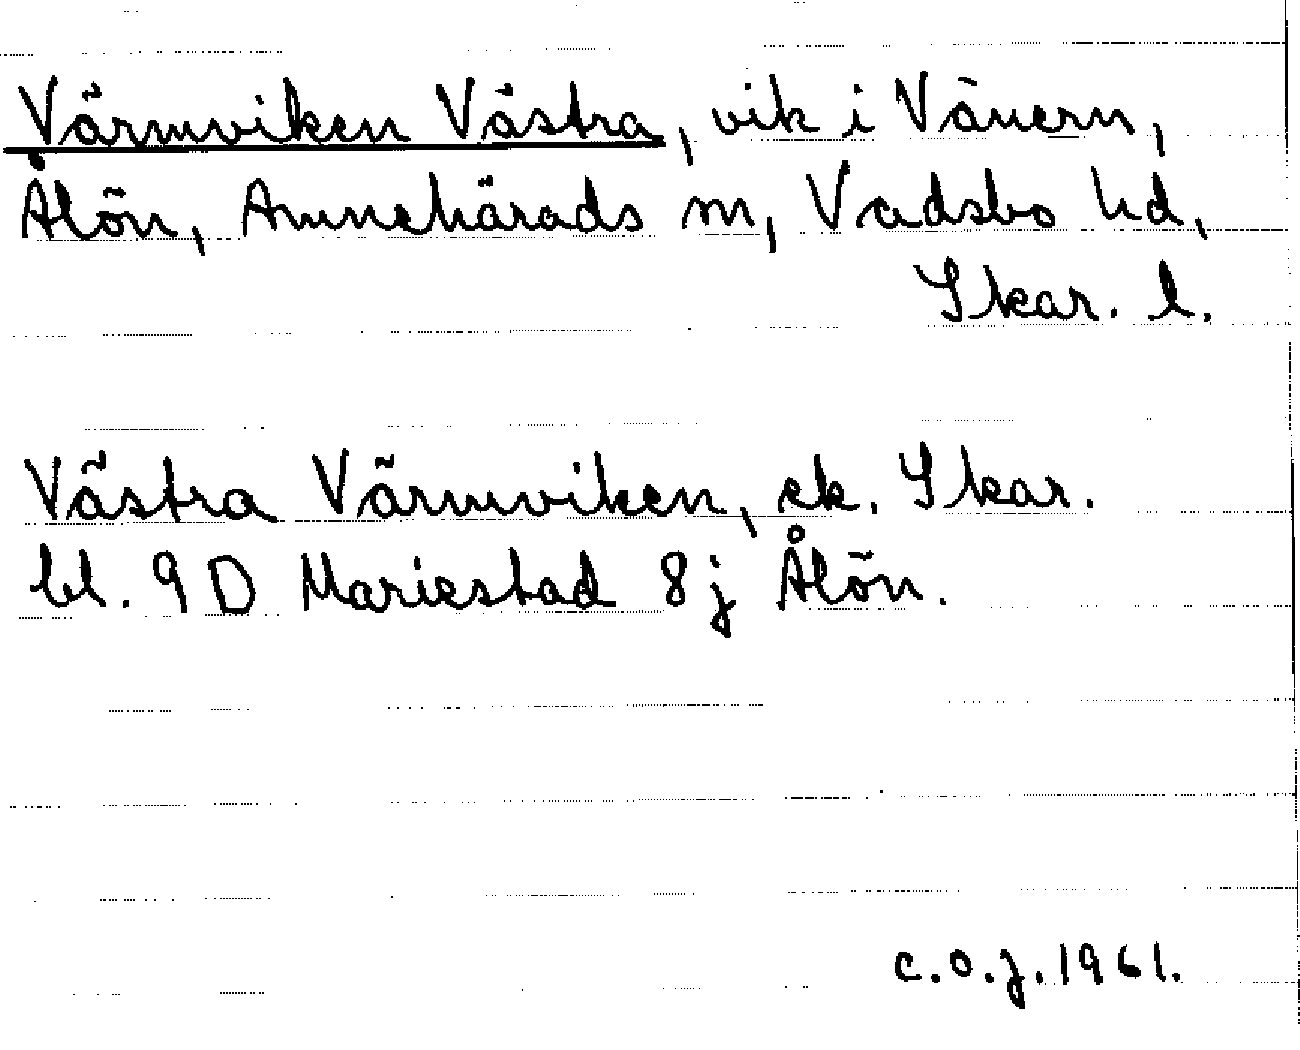 Värmviken Västra, vik i Vänern,
Ålön, Amnehärads sn, Vadsbo hd,
Skar. l.
Västra Värmviken, ek. Skar.
bl. 9 D Mariestad 8 j Ålön.
c.o.j. 1961.